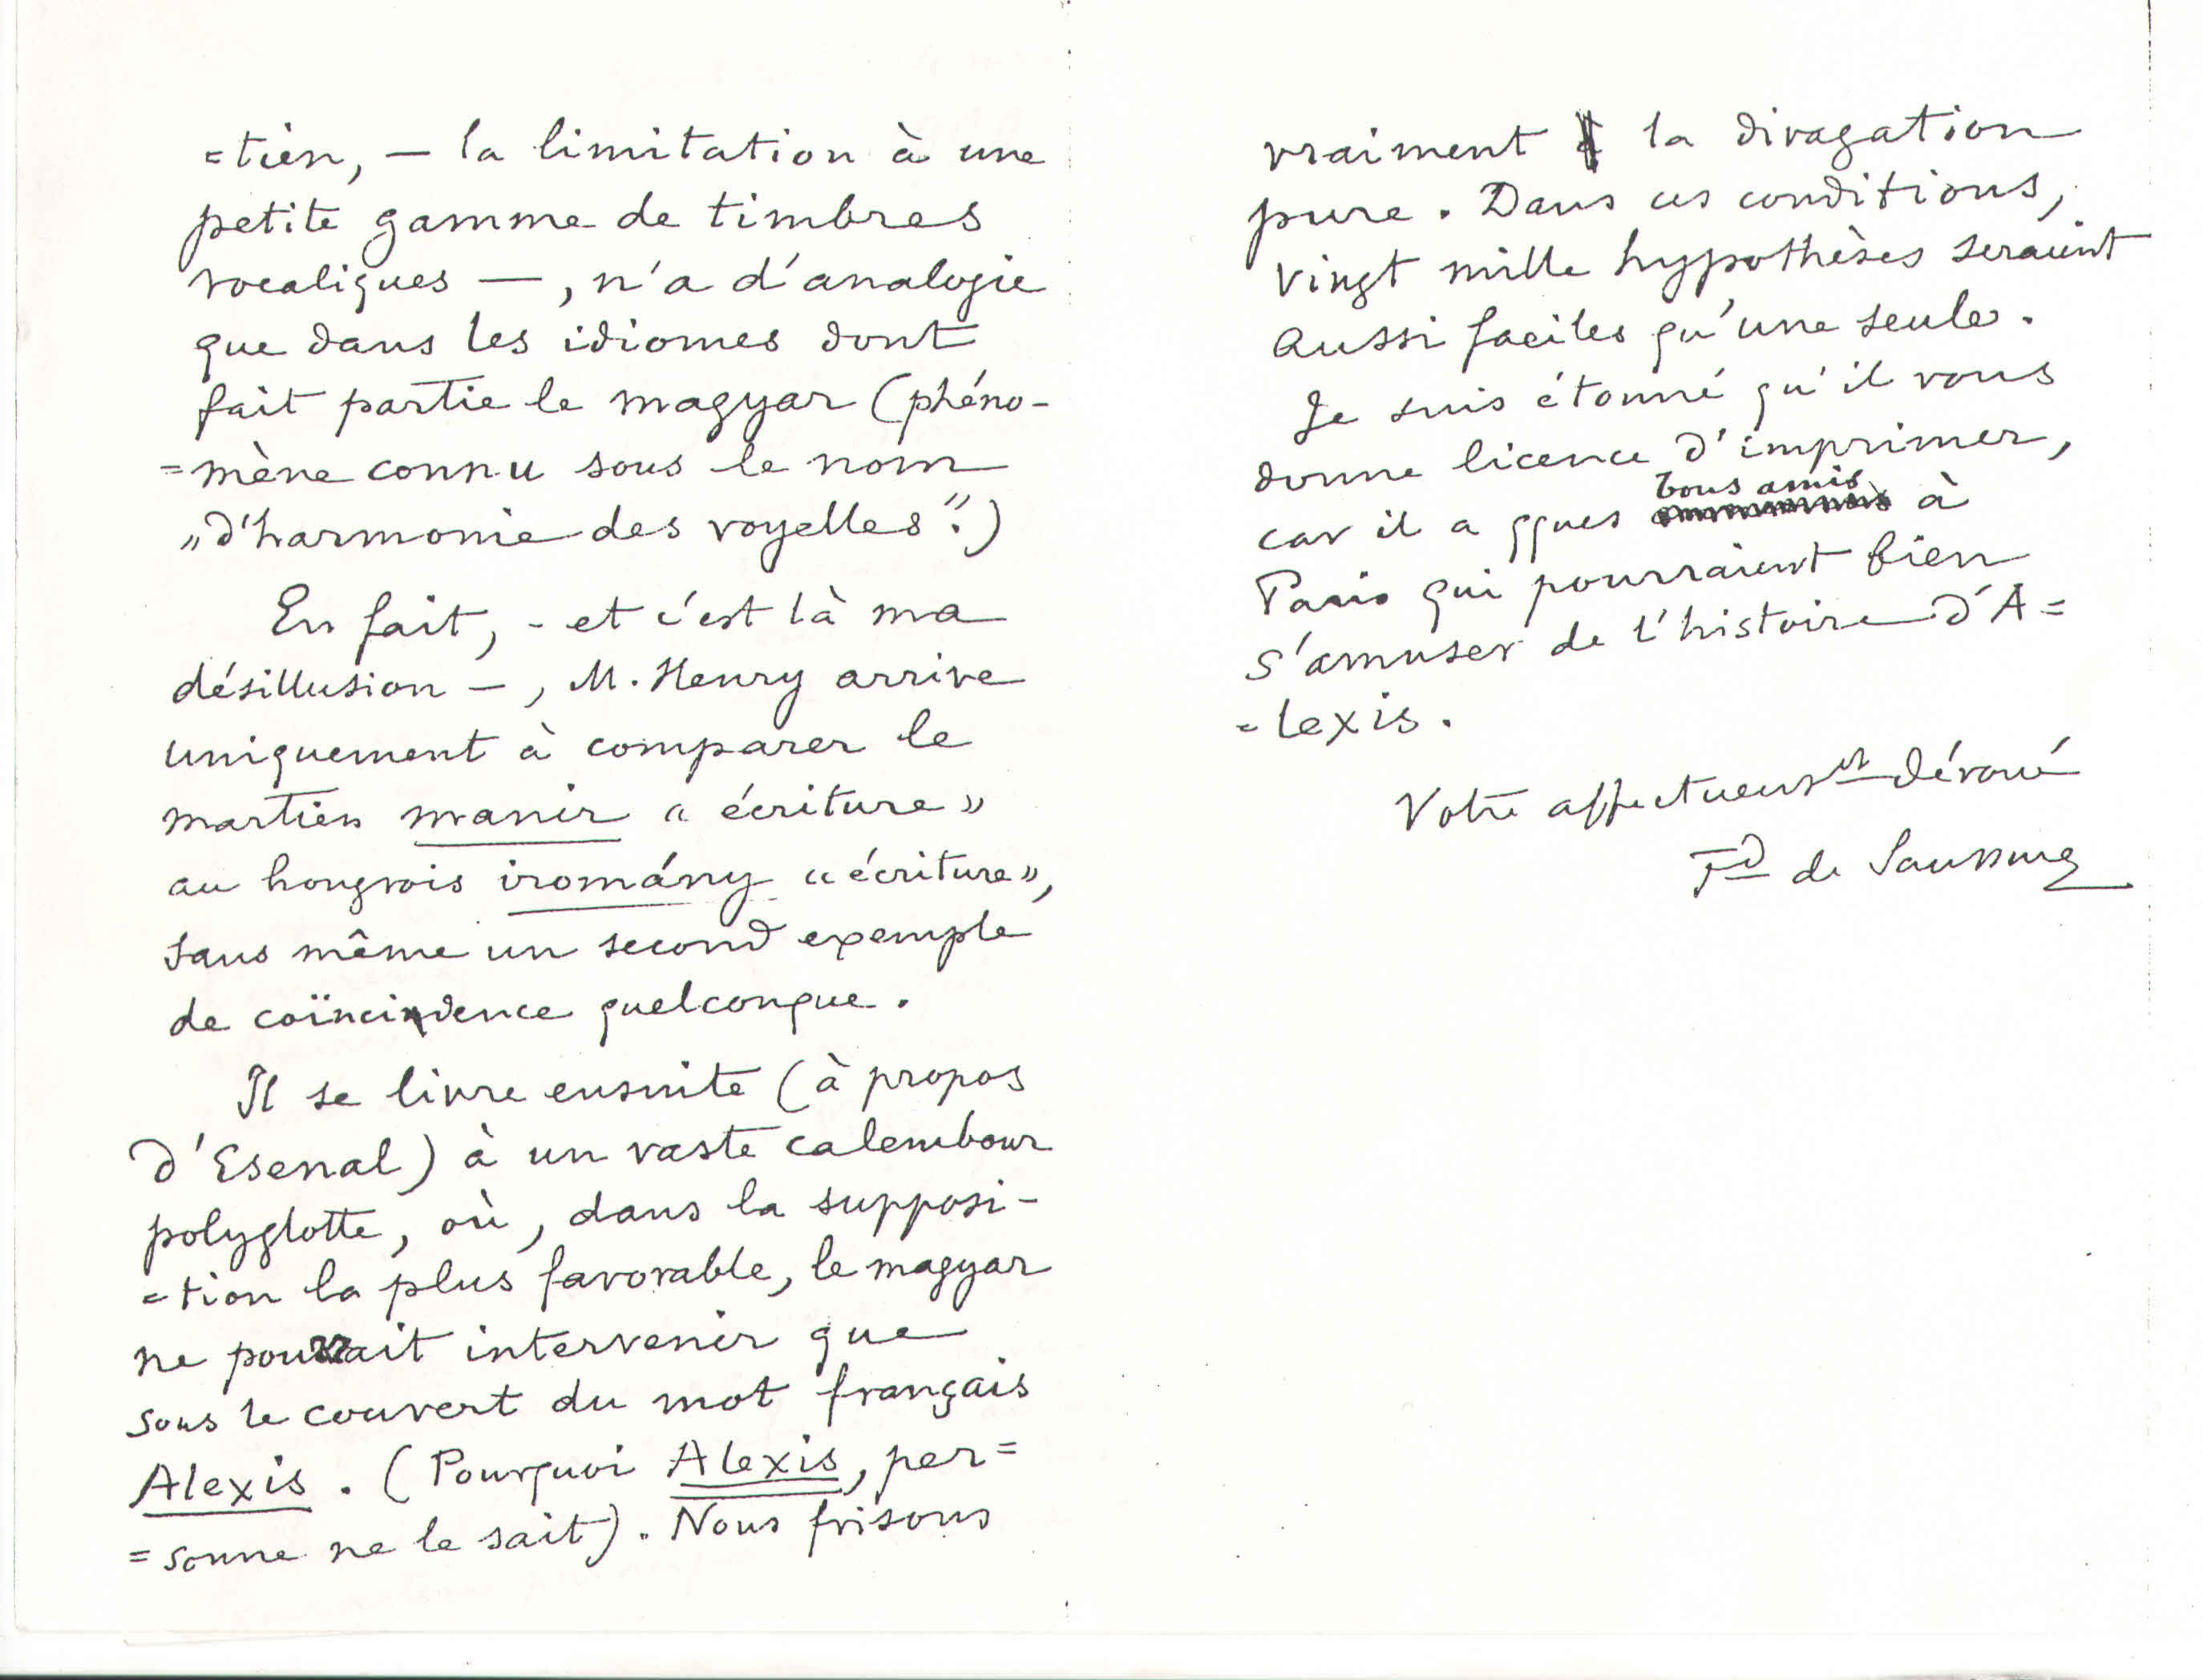 =tien, — la limitation à une
petite gamme de timbres
vocaliques —, n'a d'analogie
que dans les idiomes dont
fait partie le magyar (phéno-
=mène connu sous le nom
„d'harmonie des voyelles“.)
En fait, - et c'est là ma
désillusion —, M. Henry arrive
uniquement à comparer le
martien manir « écriture »
au hongrois iromány « écriture »,
sans même un second exemple
de coïncidence quelconque.
Il se livre ensuite (à propos
d'Esenal) à un vaste calembour
polyglotte, où, dans la supposi-
=tion la plus favorable, le magyar
ne pourrait intervenir que
sous le couvert du mot français
Alexis. (Pourquoi Alexis, per=
=sonne ne le sait). Nous frisons
vraiment la divagation
pure. Dans ces conditions,
vingt mille hypothèses seraient
aussi faciles qu'une seule.
Je suis étonné qu'il vous
donne licence d'imprimer,
car il a qques bons amis à
Paris qui pourraient bien
s'amuser de l'histoire d'A=
=lexis.
Votre affectueusnt dévoué
Fd de Saussure